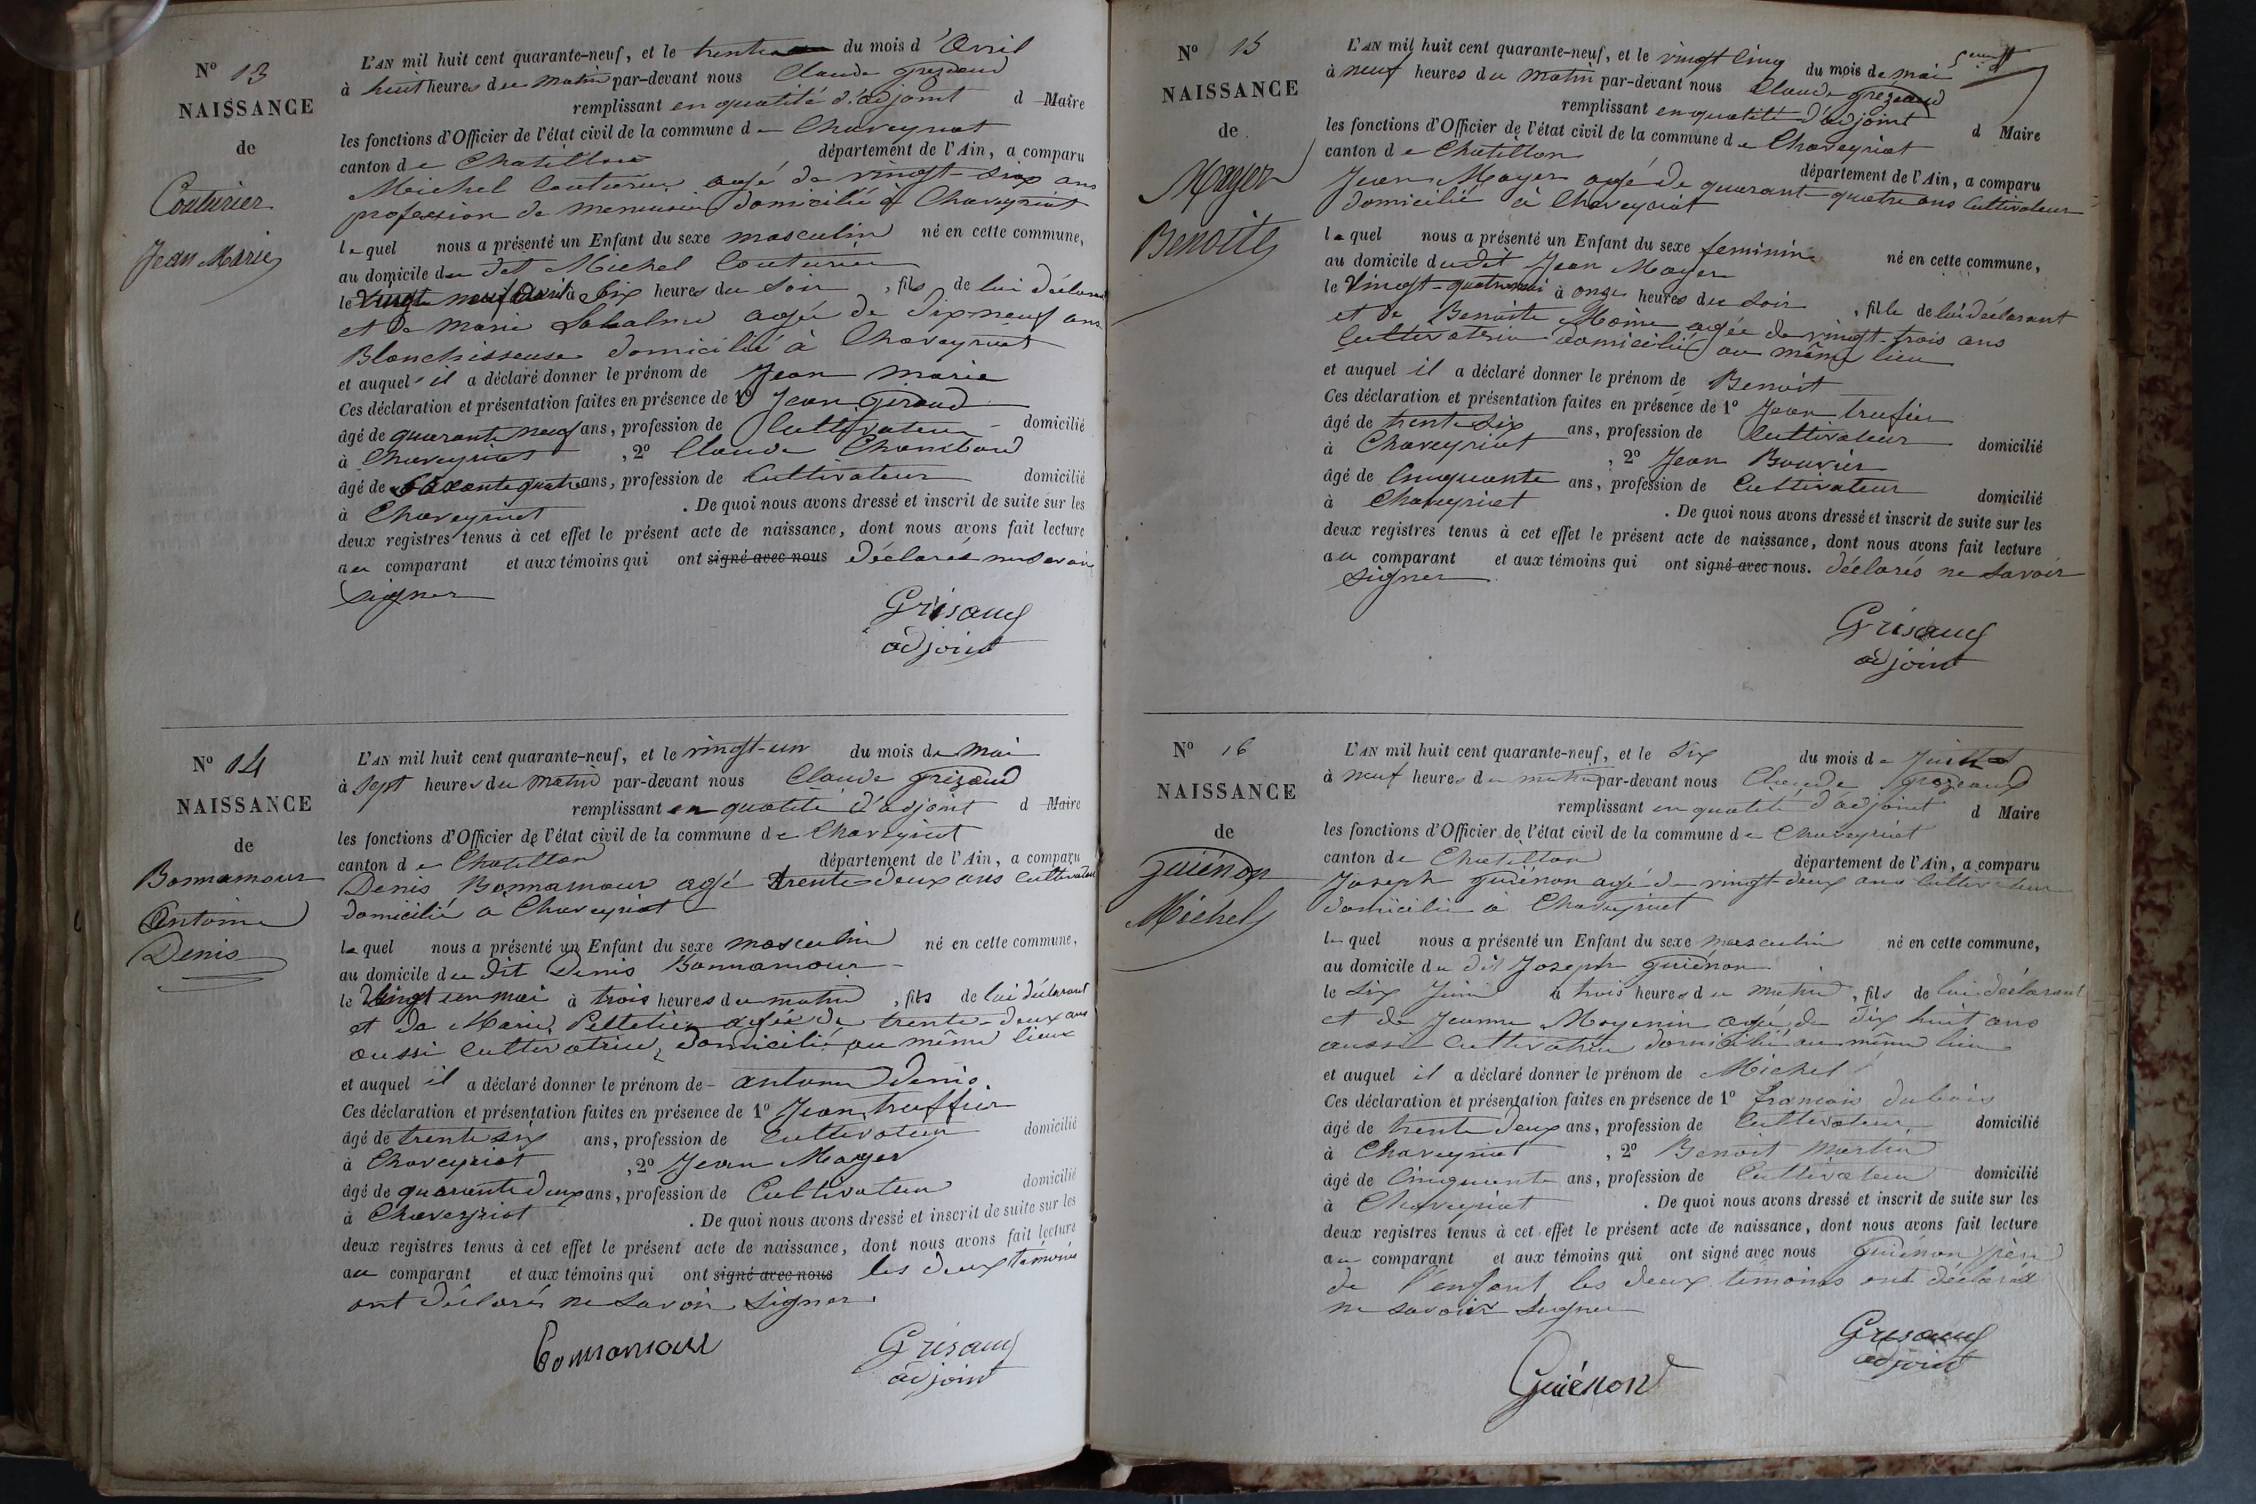 N° 13
NAISSANCE
de
Couturier
Jean Marie
L'AN mil huit cent quarante-neuf, et le trente du mois d'Avril
à huit heures du matin par-devant nous Claude Grezaud
remplissant en qualité d'adjoint d Maire
les fonctions d'Officier de l'état civil de la commune de Chaveyriat
canton de Chatillon département de l'Ain, a comparu
Michel Couturier agé de vingt-six ans
profession de menuisier domicilié à Chaveyriat
lequel nous a présenté un Enfant du sexe masculin né en cette commune,
au domicile du dit Michel Couturier
le vingt neuf avril à six heures du soir, fils de lui déclarant
et de Marie Labalme agée de dix neuf ans
Blanchisseuse domicilié à Chaveyriat
et auquel il a déclaré donner le prénom de Jean marie
Ces déclaration et présentation faites en présence de 1° Jean Giraud
âgé de quarante neuf ans, profession de Cultivateur domicilié
à Chaveyriat, 2° Claude Chambard
âgé de soixante quatre ans, profession de Cultivateur domicilié
à Chaveyriat. De quoi nous avons dressé et inscrit de suite sur les
deux registres tenus à cet effet le présent acte de naissance, dont nous avons fait lecture
au comparant et aux témoins qui ont signé avec nous déclarés ne savoir
signer
Grisaud
adjoint
N° 14
NAISSANCE
de
Bonnamour
Antoine
Denis
L'AN mil huit cent quarante-neuf, et le vingt-un du mois de mai
à sept heures du matin par-devant nous Claude Grizaud
remplissant en qualité d'adjoint d Maire
les fonctions d'Officier de l'état civil de la commune de Chaveyriat
canton de Chatillon département de l'Ain, a comparu
Denis Bonnamour agé trente-deux ans cultivateur
domicilié à Chaveyriat
lequel nous a présenté un Enfant du sexe masculin né en cette commune,
au domicile du dit Denis Bonnamour
le Vingt un mai à trois heures du matin, fils de lui déclarant
et de Marie Pelletier agée de trente-deux ans
aussi cultivatrice, domicilié au même lieux
et auquel il a déclaré donner le prénom de - antoine Denis.
Ces déclaration et présentation faites en présence de 1° Jean truffier
âgé de trente six ans, profession de Cultivateur domicilié
à Chaveyriat, 2° Jean Mayer
âgé de quarante deux ans, profession de Cultivateur domicilié
à Chaveyriat. De quoi nous avons dressé et inscrit de suite sur les
deux registres tenus à cet effet le présent acte de naissance, dont nous avons fait lecture
au comparant et aux témoins qui ont signé avec nous les deux témoins
ont déclarés ne savoir signer.
Bonnamour Grisaud
adjoint
N° 15
NAISSANCE
de
Mayer
Benoite
L'AN mil huit cent quarante-neuf, et le vingt cinq du mois de mai
à neuf heures du matin par-devant nous Claude Grezaud
remplissant en qualité d'adjoint d Maire
les fonctions d'Officier de l'état civil de la commune de Chaveyriat
canton de Chatillon département de l'Ain, a comparu
Jean Mayer agé de quarante-quatre ans Cultivateur
domicilié à Chaveyriat
lequel nous a présenté un Enfant du sexe feminin né en cette commune,
au domicile du dit Jean Mayer
le Vingt-quatre mai à onze heures du soir, fille de lui déclarant
et de Benoite Moine agée de vingt-trois ans
Cultivatrice domicilié au même lieu
et auquel il a déclaré donner le prénom de Benoit
Ces déclaration et présentation faites en présence de 1° Jean trufier
âgé de trente six ans, profession de Cultivateur domicilié
à Chaveyriat, 2° Jean Bouvier
âgé de Cinquante ans, profession de Cultivateur domicilié
à Chaveyriat. De quoi nous avons dressé et inscrit de suite sur les
deux registres tenus à cet effet le présent acte de naissance, dont nous avons fait lecture
au comparant et aux témoins qui ont signé avec nous. déclarés ne savoir
signer
Grisaud
adjoint
N° 16
NAISSANCE
de
Guiénon
Michel
L'AN mil huit cent quarante-neuf, et le Six du mois de
à neuf heures du matin par-devant nous Claude Grezaud
remplissant en qualité d'adjoint d Maire
les fonctions d'Officier de l'état civil de la commune de Chaveyriat
canton de Chatillon département de l'Ain, a comparu
Joseph Guiénon agé de vingt-deux ans Cultivateur
domicilié à Chaveyriat
lequel nous a présenté un Enfant du sexe masculin né en cette commune,
au domicile du dit Joseph Guiénon
le six Juin à trois heures du matin, fils de lui déclarant
et de Jeanne Moyenin agée de dix huit ans
aussi Cultivatrice domicilié au même lieu
et auquel il a déclaré donner le prénom de Michel
Ces déclaration et présentation faites en présence de 1° francois dubois
âgé de trente deux ans, profession de Cultivateur domicilié
à Chaveyriat, 2° Benoit Martin
âgé de Cinquante ans, profession de Cultivateur domicilié
à Chaveyriat. De quoi nous avons dressé et inscrit de suite sur les
deux registres tenus à cet effet le présent acte de naissance, dont nous avons fait lecture
au comparant et aux témoins qui ont signé avec nous Guiénon père
de l'enfant les deux témoins ont déclarés
ne savoir signer
Guiénon Grisaud
adjoint